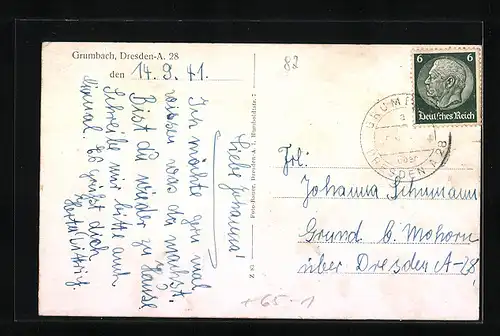 Grumbach, Dresden-A. 28
den 14.9.41.
82
Liebe Johanna!
Ich möchte gern mal
wissen was du machst.
Bist du wieder zu Hause
? Schreibe mir bitte auch
einmal. Es grüßt dich
Herta
6 6
Deutsches Reich
GRUMBACH
über
DRESDEN A 28
Frl:
Johanna Schumann
Grund b. Mohorn
über Dresden A-28
+65-1